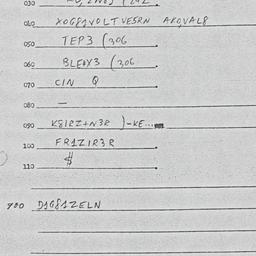 030
040 XOG81VOLT VESRN AKQVAL8
050 TEP3 (306
060 BLEOX3 (306
070 CIN Q
080 —
090 K8IRZ+N3R )-KE...
100 FR1ZIR3R
110 $
700 D1G81ZELN